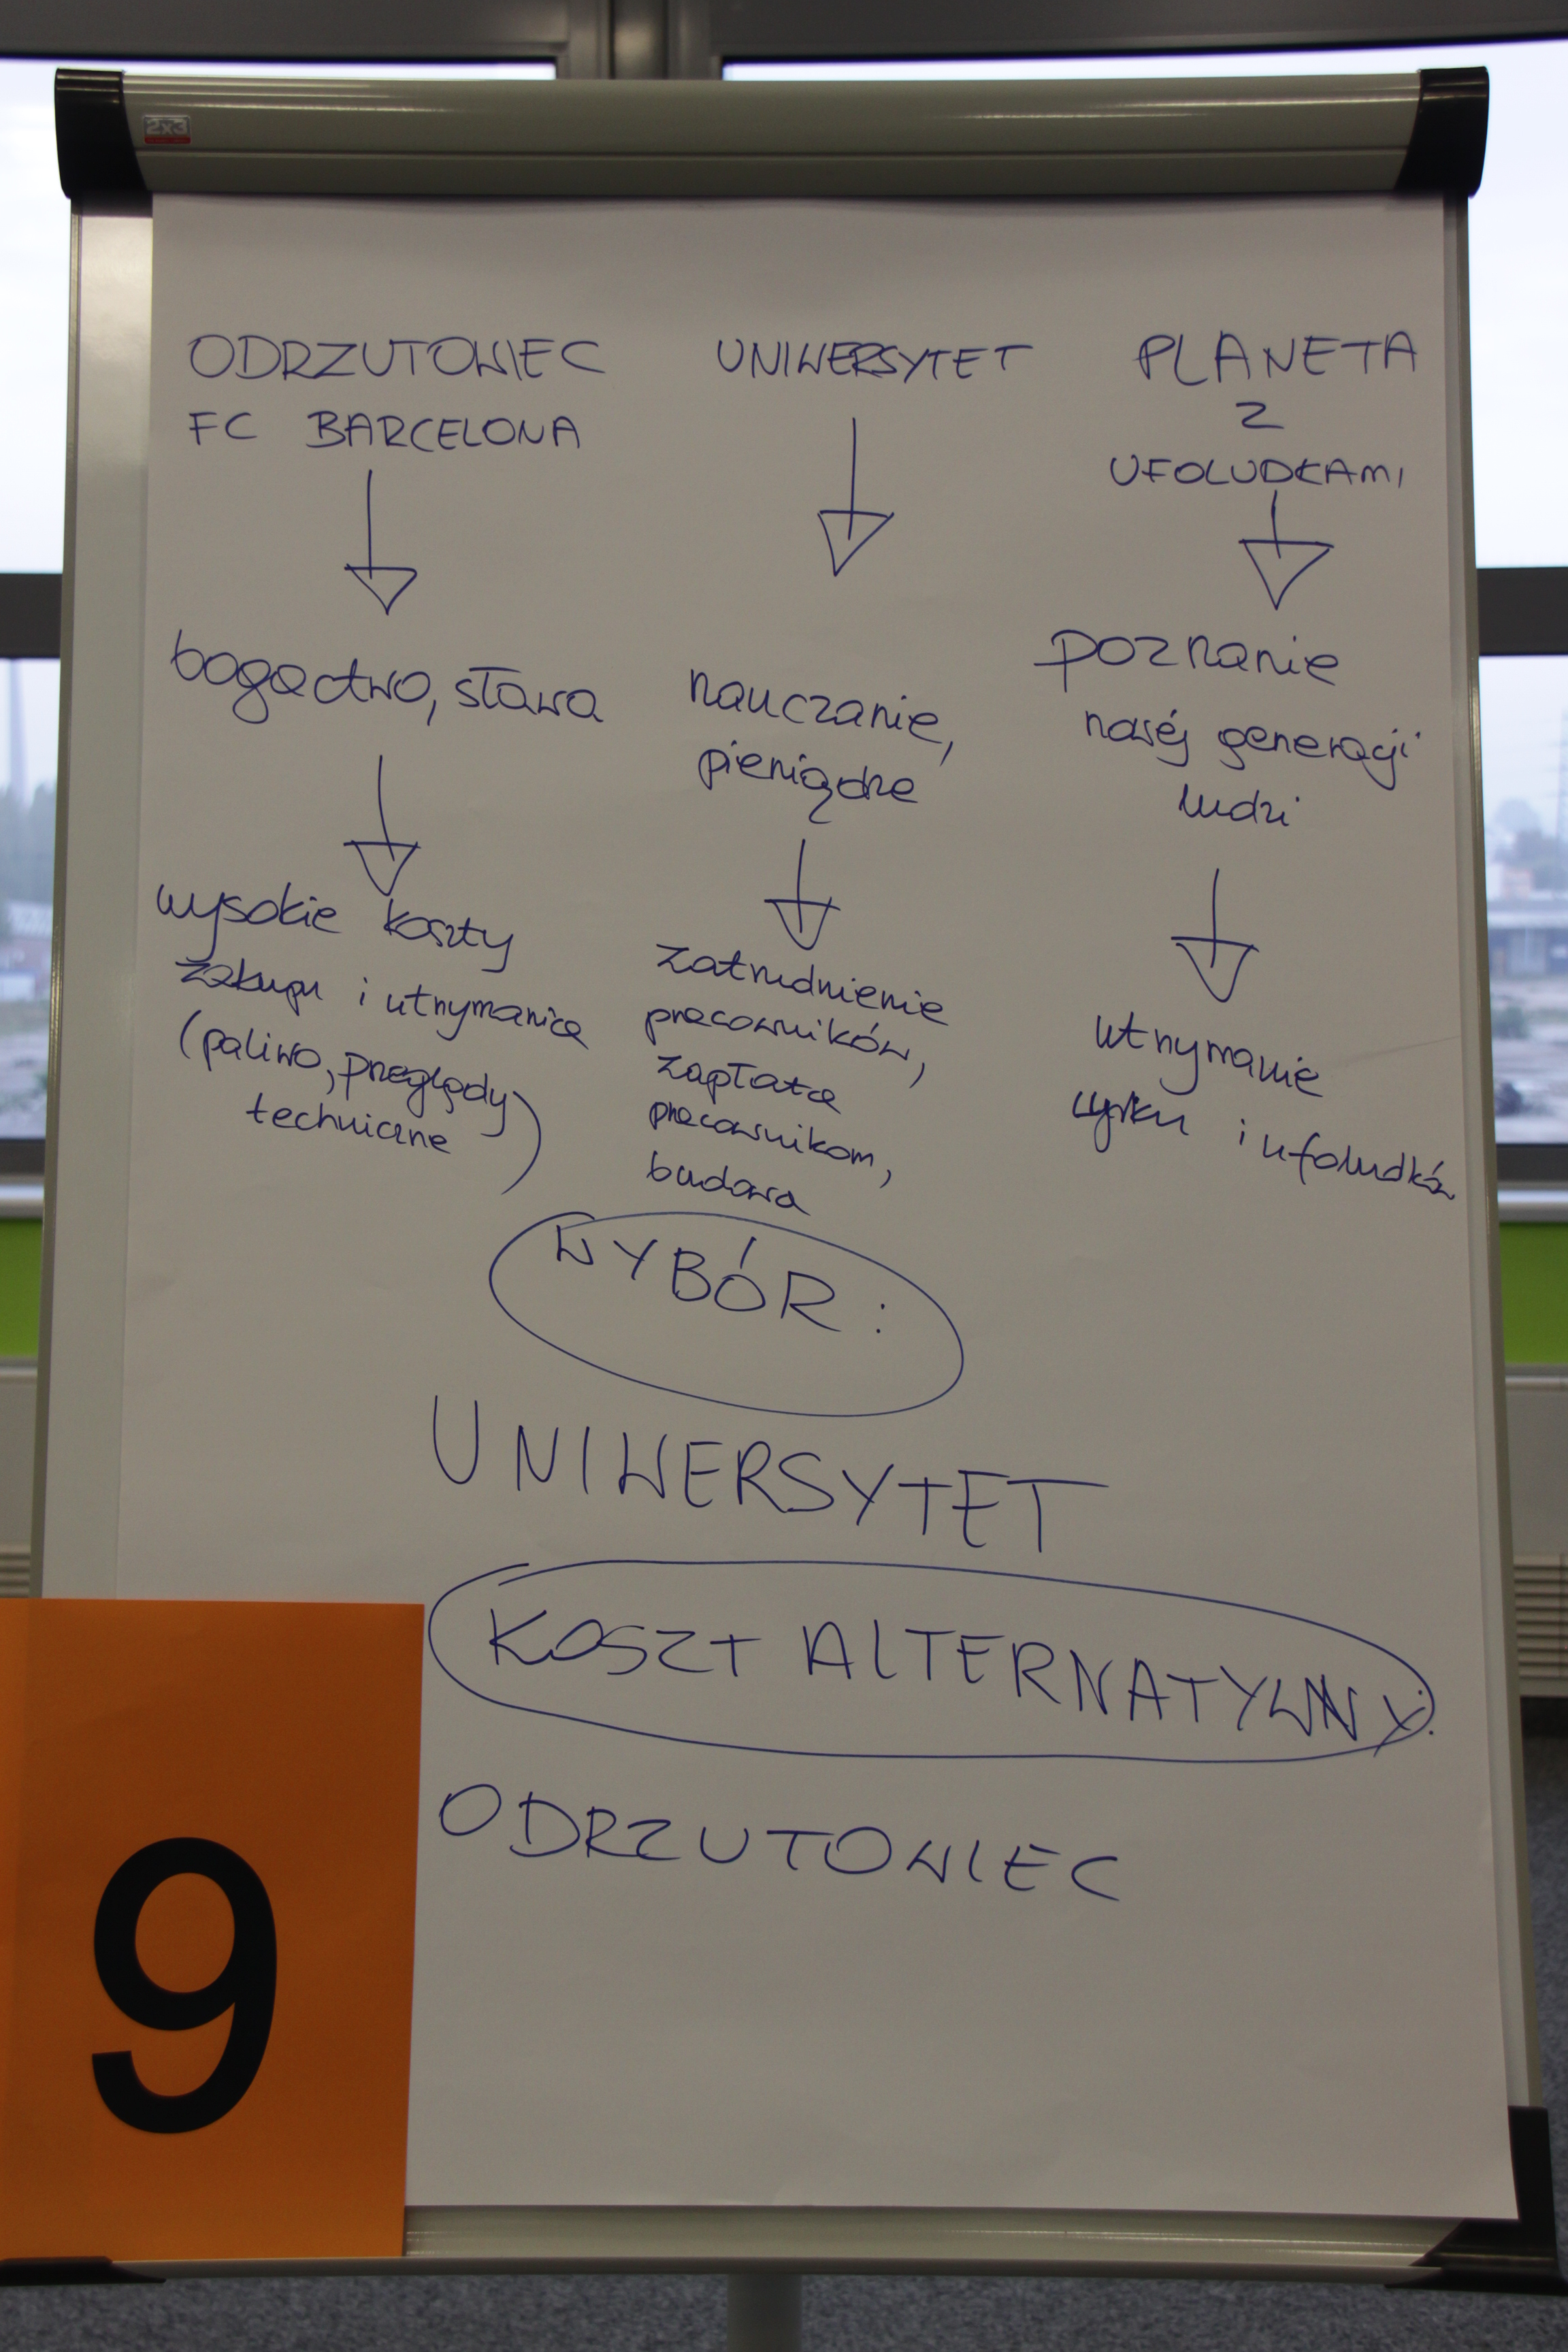 2x3
ODRZUTOWIEC
FC BARCELONA
bogactwo, sława
wysokie koszty
zakupu i utrzymania
(paliwo, przeglądy
techniczne)
UNIWERSYTET
nauczanie,
pieniądze
zatrudnienie
pracowników,
zapłata
pracownikom,
budowa
PLANETA
Z
UFOLUDKAMI
poznanie
nowej generacji
ludzi
utrzymanie
cyrku i ufoludków
WYBÓR:
UNIWERSYTET
KOSZT ALTERNATYWNY:
ODRZUTOWIEC
9